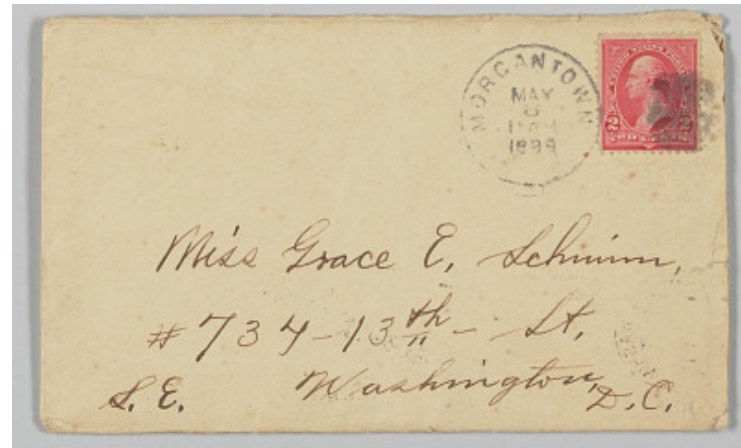 MORGANTOWN
MAY
1899
Miss Grace E. Schwinn,
# 734-13th- St,
S.E. Washington, D.C.